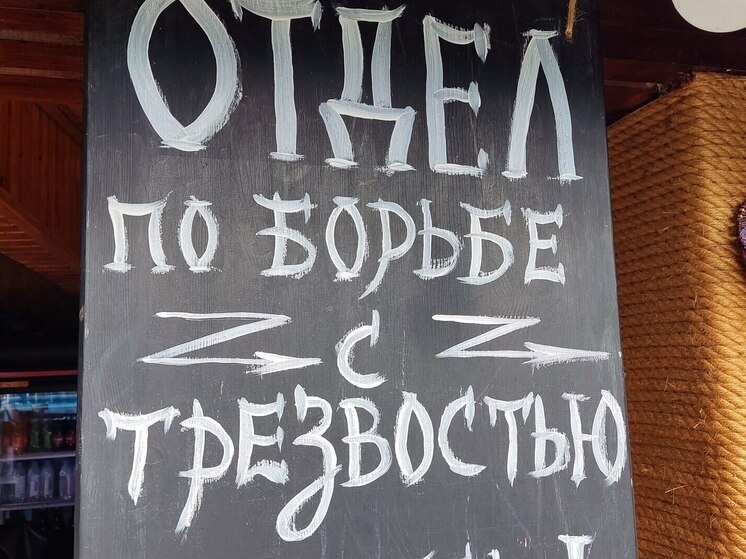 ОТДЕЛ
ПО БОРЬБЕ
С
ТРЕЗВОСТЬЮ